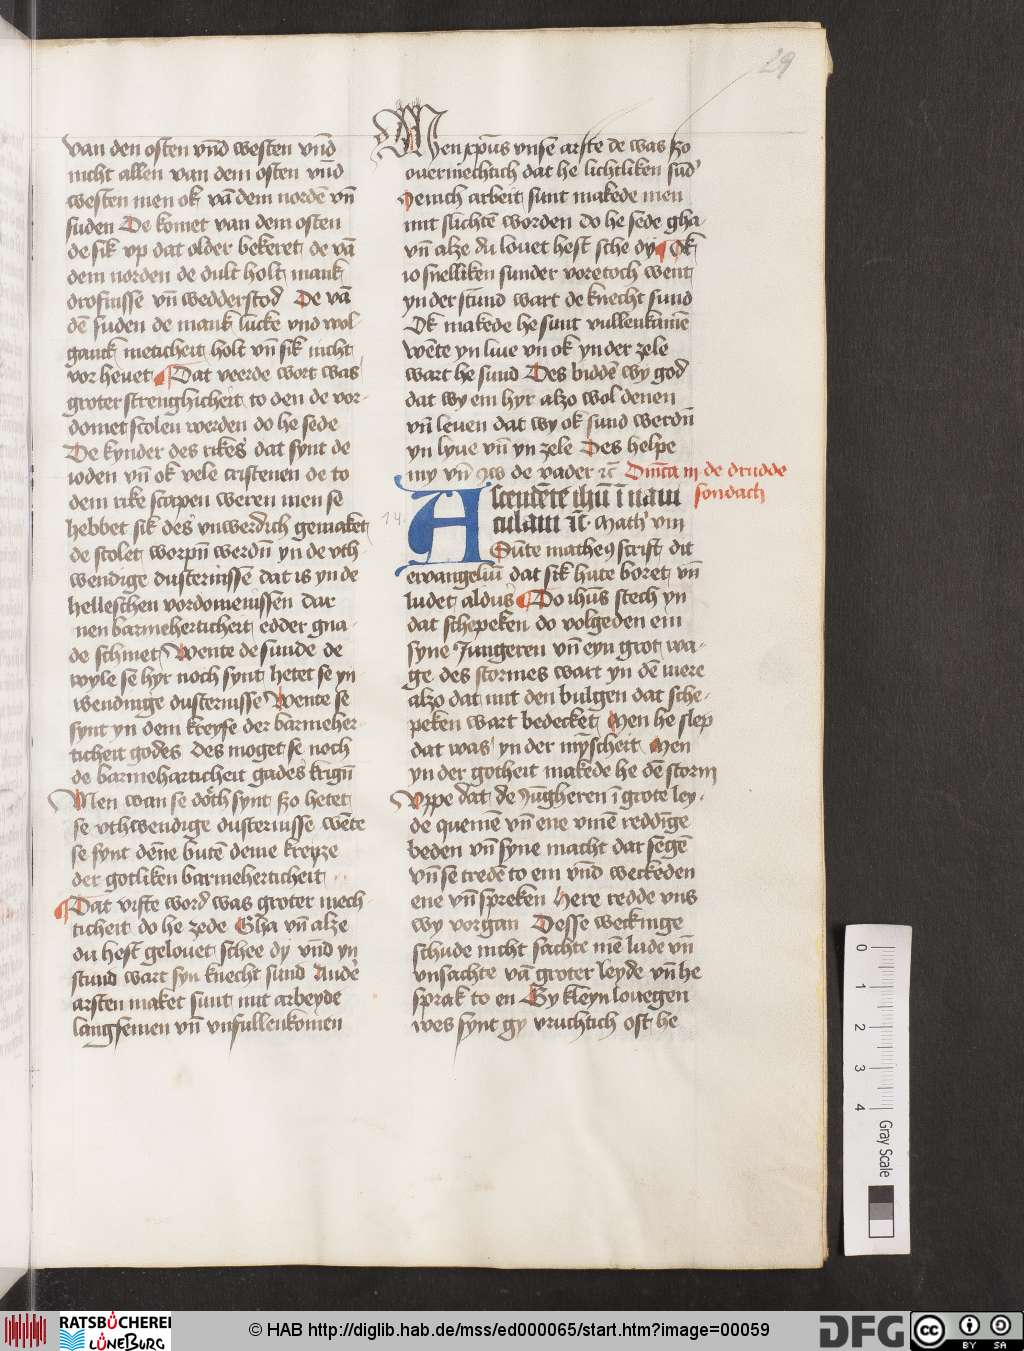 29
van den osten vnd westen vnd
nicht allen van dem osten vnd
westen men ok vā dem nordē vn̄
suden De komet van dem osten
de sik vp dat older bekeret de vā
dem norden de dult holt mank
drofnisse vn̄ wedderstod De vā
dē suden de mank lucke vnd wol
gank meticheit holt vn̄ sik nicht
vor heuet Dat veerde wort was
groter strenghicheit to den de vor-
domet scolen werden do he sede
De kynder des rikes dat synt de
ioden vn̄ ok vele cristenen de to
dem rike scapen weren men se
hebbet sik des vnwerdich gemaket
de scolet worpn̄ werdn̄ yn de vth
wendige dusternissen dat is yn de
helleschen vordomenissen dar
nen barmeherticheit edder gna-
de schinet Wente de sunde de
wyle se hyr noch synt hetet se yn
wendinge dusternisse Wente se
synt yn dem kreyse der barmeher
ticheit godes des moget se noch
de barmeharticheit gades krign̄
Men wan se doth synt szo hetet
se vthwendige dusternisse wēte
se synt dēne butē deme kreyze
der gotliken barmeherticheit
Dat virste word was groter mech
ticheit do he zede Gha vn̄ alze
du hest gelouet schee dy vnd yn
stund wart syn knecht sund Ander
arsten maket sunt mit arbeyde
langsemen vn̄ vnfullenkomen
Men xp̄us vnse arste de was szo
ouermechtich dat he lichtliken sund
jenich arbeit sunt makede men
mit slichtē worden do he sede gha
vn̄ alze du louet hest sche dy Ok
io snelliken sunder voretoch went
yn der stund wart de knecht sund
Ok makede he sunt vullenkamē
wēte yn liue vn̄ ok yn der zele
wart he sund Des biddē wy god
dat wy em hyr alzo wol denen
vn̄ leuen dat wy ok sund werdn̄
yn lyue vn̄ yn zele Des helpe
my vn̄ iw de vader ꝛc̄ Dn̄ica iij de drudde
sondach
14
Ascendēte ihū ī naui
culam ꝛc̄ Math viii
Sunte matheus scrift dit
ewangeliū dat sik hute boret vn̄
ludet aldus Do ihus stech yn
dat schepeken do volgeden em
syne Jungeren vn̄ eyn grot wa-
ge des stormes wart yn dē mere
alzo dat mit den bulgen dat sche-
peken wart bedecket Men he slep
dat was yn der mīscheit Men
yn der gotheit makede he dē storm
Vppe dat de Jūgheren ī grote ley-
de quemē vn̄ ene vmē reddīge
beden vn̄ syne macht dar segē
vn̄ se tredē to em vnd weckeden
ene vn̄ spreken Here redde vns
wy vorgan Desse weckinge
schude nicht sachte mē lude vn̄
vnsachte vā groter leyde vn̄ he
sprak to en Gy kleyn louegen
wes synt gy vruchtich oft he
0
1
2
3
4
Gray Scale
RATSBÜCHEREI
LÜNEBURG
© HAB http://diglib.hab.de/mss/ed000065/start.htm?image=00059
DFG
cc
BY SA